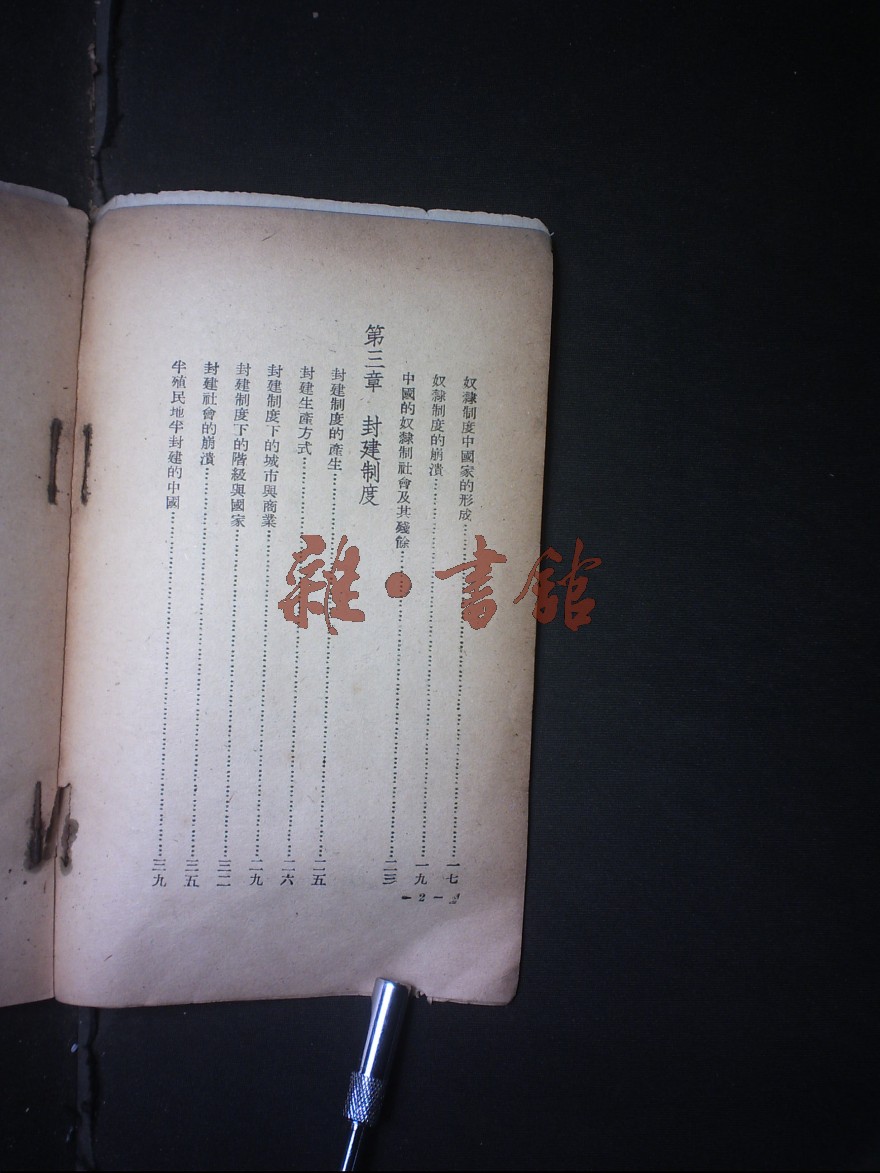 奴隸制度中國家的形成……一七
奴隸制度的崩潰……一九
中國的奴隸制社會及其殘餘……二三
第三章 封建制度
封建制度的產生……二五
封建生產方式……二六
封建制度下的城市與商業……二九
封建制度下的階級與國家……三二
封建社會的崩潰……三五
半殖民地半封建的中國……三九
-2-
雜·書館